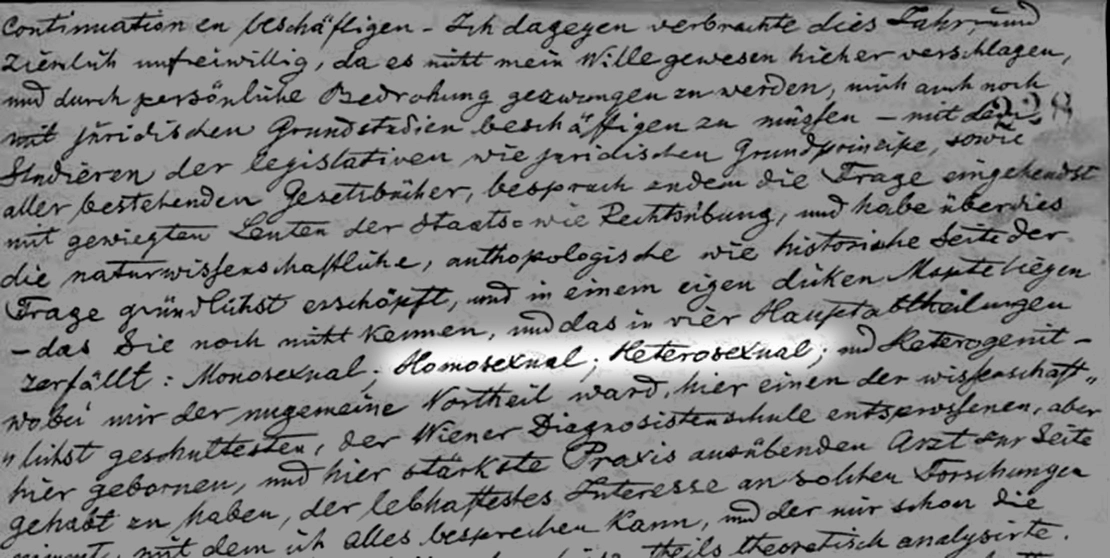 Continuation en beschäftigen – Ich dagegen verbrachte dies Jahr, und
ziemlich unfreiwillig, da es nicht mein Wille gewesen hieher verschlagen,
und durch persönliche Bedrohung gezwungen zu werden, mich auch noch
mit juridischen Grundstudien beschäftigen zu müssen – mit dem 228
Studieren der legislativen wie juridischen Grundprincipe, sowie
aller bestehenden Gesetzbücher, besprach zudem die Frage eingehendst
mit gewiegten Leuten der Staats- wie Rechtsübung, und habe überdies
die naturwissenschaftliche, anthopologische wie historische Seite der
Frage gründlichst erschöpft, und in einem eigen dicken Mspte liegen
– das Sie noch nicht kennen, und das in vier Hauptabtheilungen
zerfällt: Monosexual; Homosexual; Heterosexual; und Heterogenit –
wobei mir der ungemeine Vortheil ward, hier einen der wissenschaft„
„lichst geschultesten, der Wiener Diagnostistenschule entsprossenen, aber
hier gebornen, und hier stärkste Praxis ausübenden Arzt zur Seite
gehabt zu haben, der lebhaftestes Interesse an solchen Forschungen
nimmt, mit dem ich alles besprechen kann, und der mir schon die
theils theoretisch analysirte.